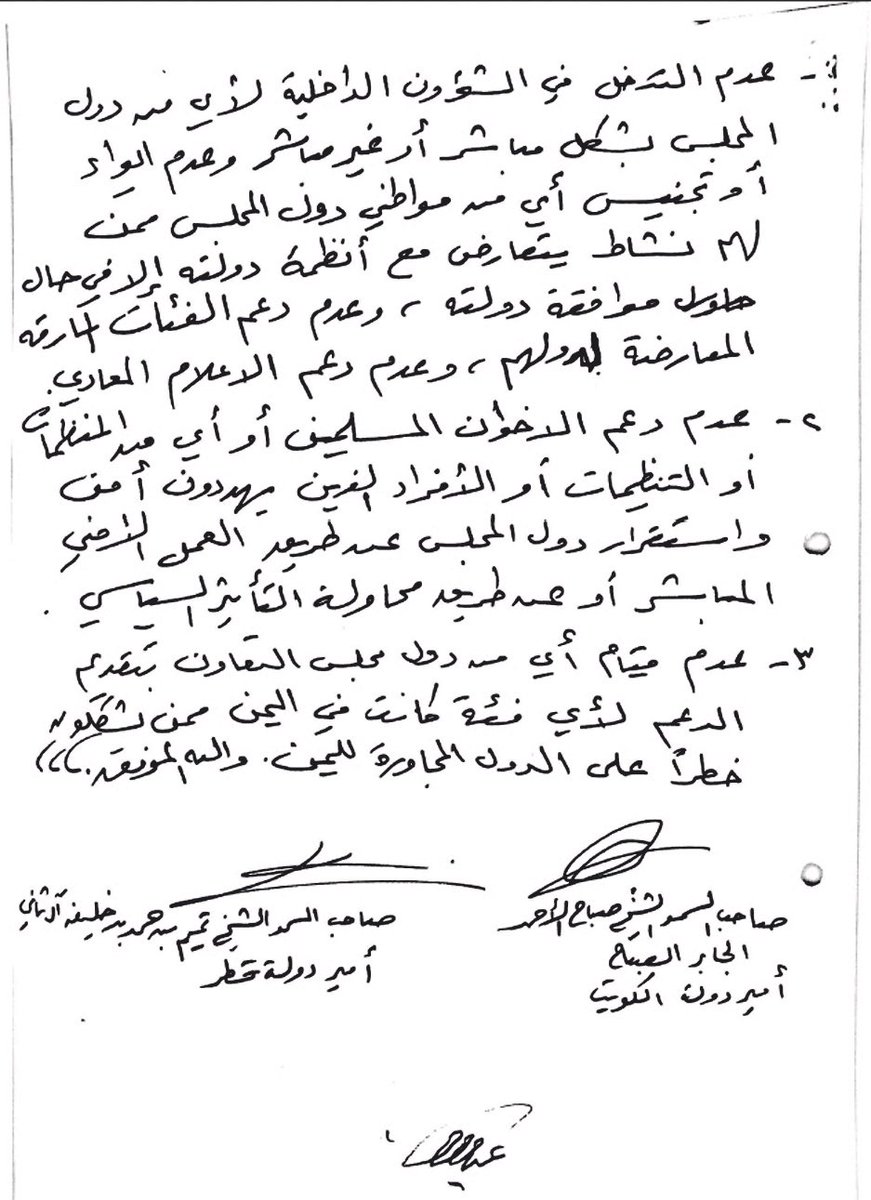 ١- عدم التدخل في الشؤون الداخلية لأي من دول
المجلس بشكل مباشر أو غير مباشر وعدم ايواء
أو تجنيس أي من مواطني دول المجلس ممن
لهم نشاط يتعارض مع أنظمة دولته إلا في حال
موافقة دولته ، وعدم دعم الفئات المارقه
المعارضة لدولهم ، وعدم دعم الاعلام المعادي .
٢- عدم دعم الاخوان المسلمين أو أي من المنظمات
أو التنظيمات أو الأفراد الذين يهددون أمن
واستقرار دول المجلس عن طريق العمل الأمني
المباشر أو عن طريق محاولة التأثير السياسي .
٣- عدم قيام أي من دول مجلس التعاون بتقديم
الدعم لأي فئة كانت في اليمن ممن يشكلون
خطراً على الدول المجاورة لليمن . والله الموفق ،،،
صاحب السمو الشيخ صباح الأحمد
الجابر الصباح
أمير دولة الكويت
صاحب السمو الشيخ تميم بن حمد بن خليفه آل ثاني
أمير دولة قطر